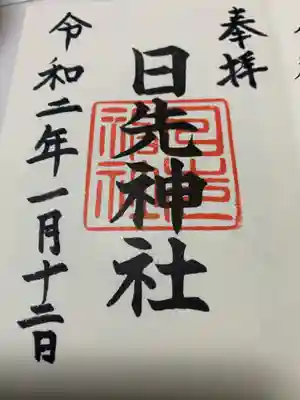 奉拝
日先神社
令和二年一月十二日